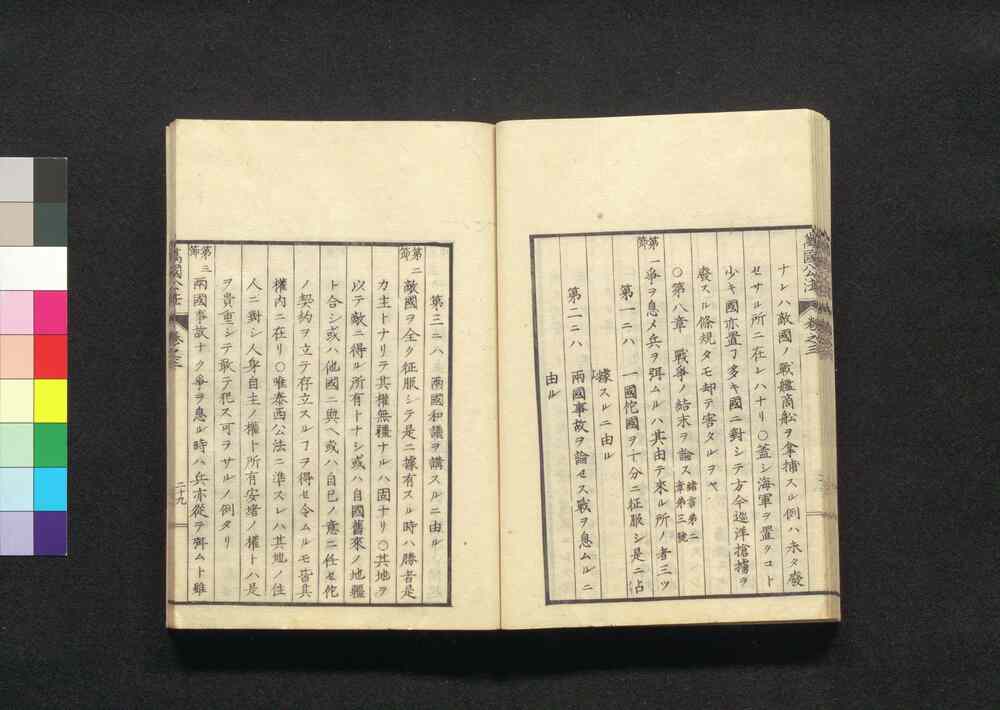 萬國公法 卷之三
ナレハ敵國ノ戰艦商舩ヲ拿捕スル例ハ未タ廢
セサル所ニ在レハナリ〇蓋シ海軍ヲ置クコト
少キ國亦置ヿ多キ國ニ對シテ方今巡洋搶擄ヲ
廢スル條規タモ却テ害タルヲヤ
〇第八章 戰爭ノ結末ヲ論ス 緒言第二章第三號
第一節 爭ヲ息メ兵ヲ弭ムルハ其由テ來ル所ノ者三ツ
第一ニハ 一國佗國ヲ十分ニ征服シ是ニ占
據スルニ由ル
第二ニハ 兩國事故ヲ論セス戰ヲ息ムルニ
由ル
第三ニハ 兩國和議ヲ講スルニ由ル
第二節 敵國ヲ全ク征服シテ是ニ據有スル時ハ勝者是
カ主トナリテ其權無疆ナルハ固ナリ〇其地ヲ
以テ敵ニ得ル所有トナシ或ハ自國舊來ノ地疆
ト合シ或ハ他國ニ與ヘ或ハ自已ノ意ニ任セ佗
ノ契約ヲ立テ存立スルヿヲ得セ令ムルモ皆其
權內ニ在リ〇唯泰西公法ニ準スレハ其地ノ住
人ニ對シ人身自主ノ權ト所有安堵ノ權トハ是
ヲ貴重シテ敢テ犯ス可ヲサルノ例タリ
第三節 兩國事故ナク爭ヲ息ル時ハ兵亦從テ弭ムト雖
萬國公法 卷之三 二十九